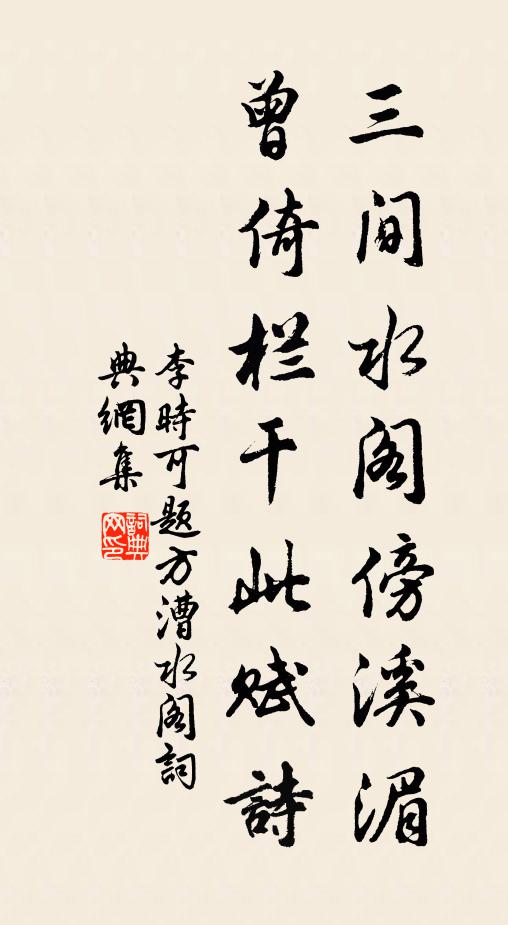 三间水阁傍溪湄
曾倚栏干此赋詩
李時可题方漕水阁詞
典網集
詞典網印